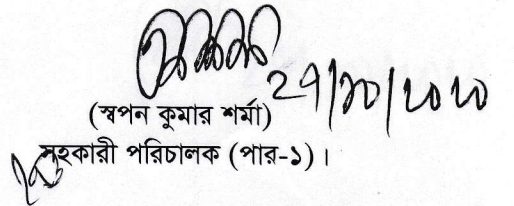 ২৭/১০/২০২০
(স্বপন কুমার শর্মা)
সহকারী পরিচালক (পার-১)।